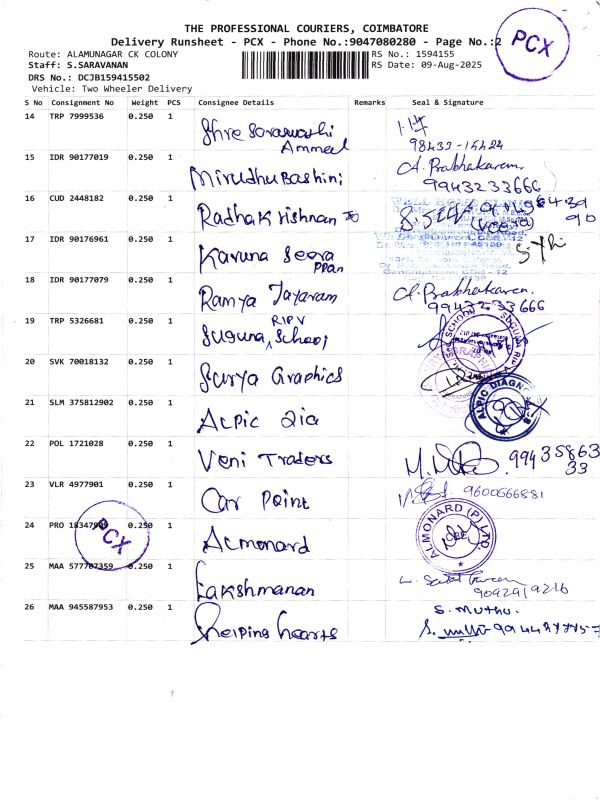 THE PROFESSIONAL COURIERS, COIMBATORE
Delivery Runsheet - PCX - Phone No.:9047080280 - Page No.:2
PCX
Route: ALAMUNAGAR CK COLONY
RS No.: 1594155
Staff: S.SARAVANAN
RS Date: 09-Aug-2025
DRS No.: DCJB159415502
Vehicle: Two Wheeler Delivery
S No Consignment No Weight PCS Consignee Details Remarks Seal & Signature
14 TRP 7999536 0.250 1 Shree Saraswathi
Ammeel
98433-15424
15 IDR 90177019 0.250 1 Mirudhubashini
A. Prabhakaran
9943233666
16 CUD 2448182 0.250 1 Radhakrishnan
17 IDR 90176961 0.250 1 Karuna Seera
PPan
18 IDR 90177079 0.250 1 Ramya Jayaram
A. Prabhakaran.
9943233666
19 TRP 5326681 0.250 1 Suguna RIPV School
20 SVK 70018132 0.250 1 Surya Graphics
21 SLM 375812902 0.250 1 Alpic Dia
ALPIC DIAGN
22 POL 1721028 0.250 1 Veni Traders
9943586333
23 VLR 4977901 0.250 1 Car Point
9600666881
24 PRO 0.250 1 Almonard
PCX
ALMONARD (P) LTD.
CBE
25 MAA 577707359 0.250 1 Lakshmanan
9092919216
26 MAA 945587953 0.250 1 Helping hearts
S. Muthu.